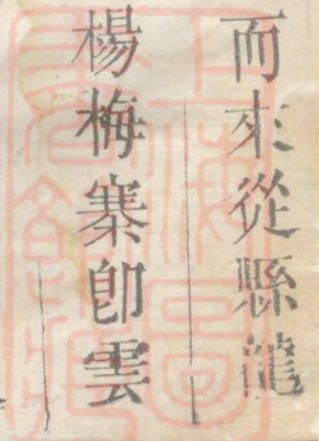 而來從縣龍
楊梅寨卽雲